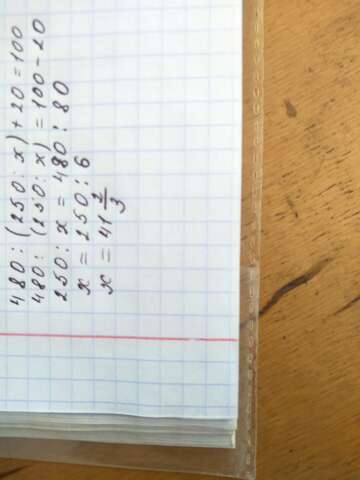 480 : (250 : x) + 20 = 100
480 : (250 : x) = 100 - 20
250 : x = 480 : 80
x = 250 : 6
x = 41 2/3